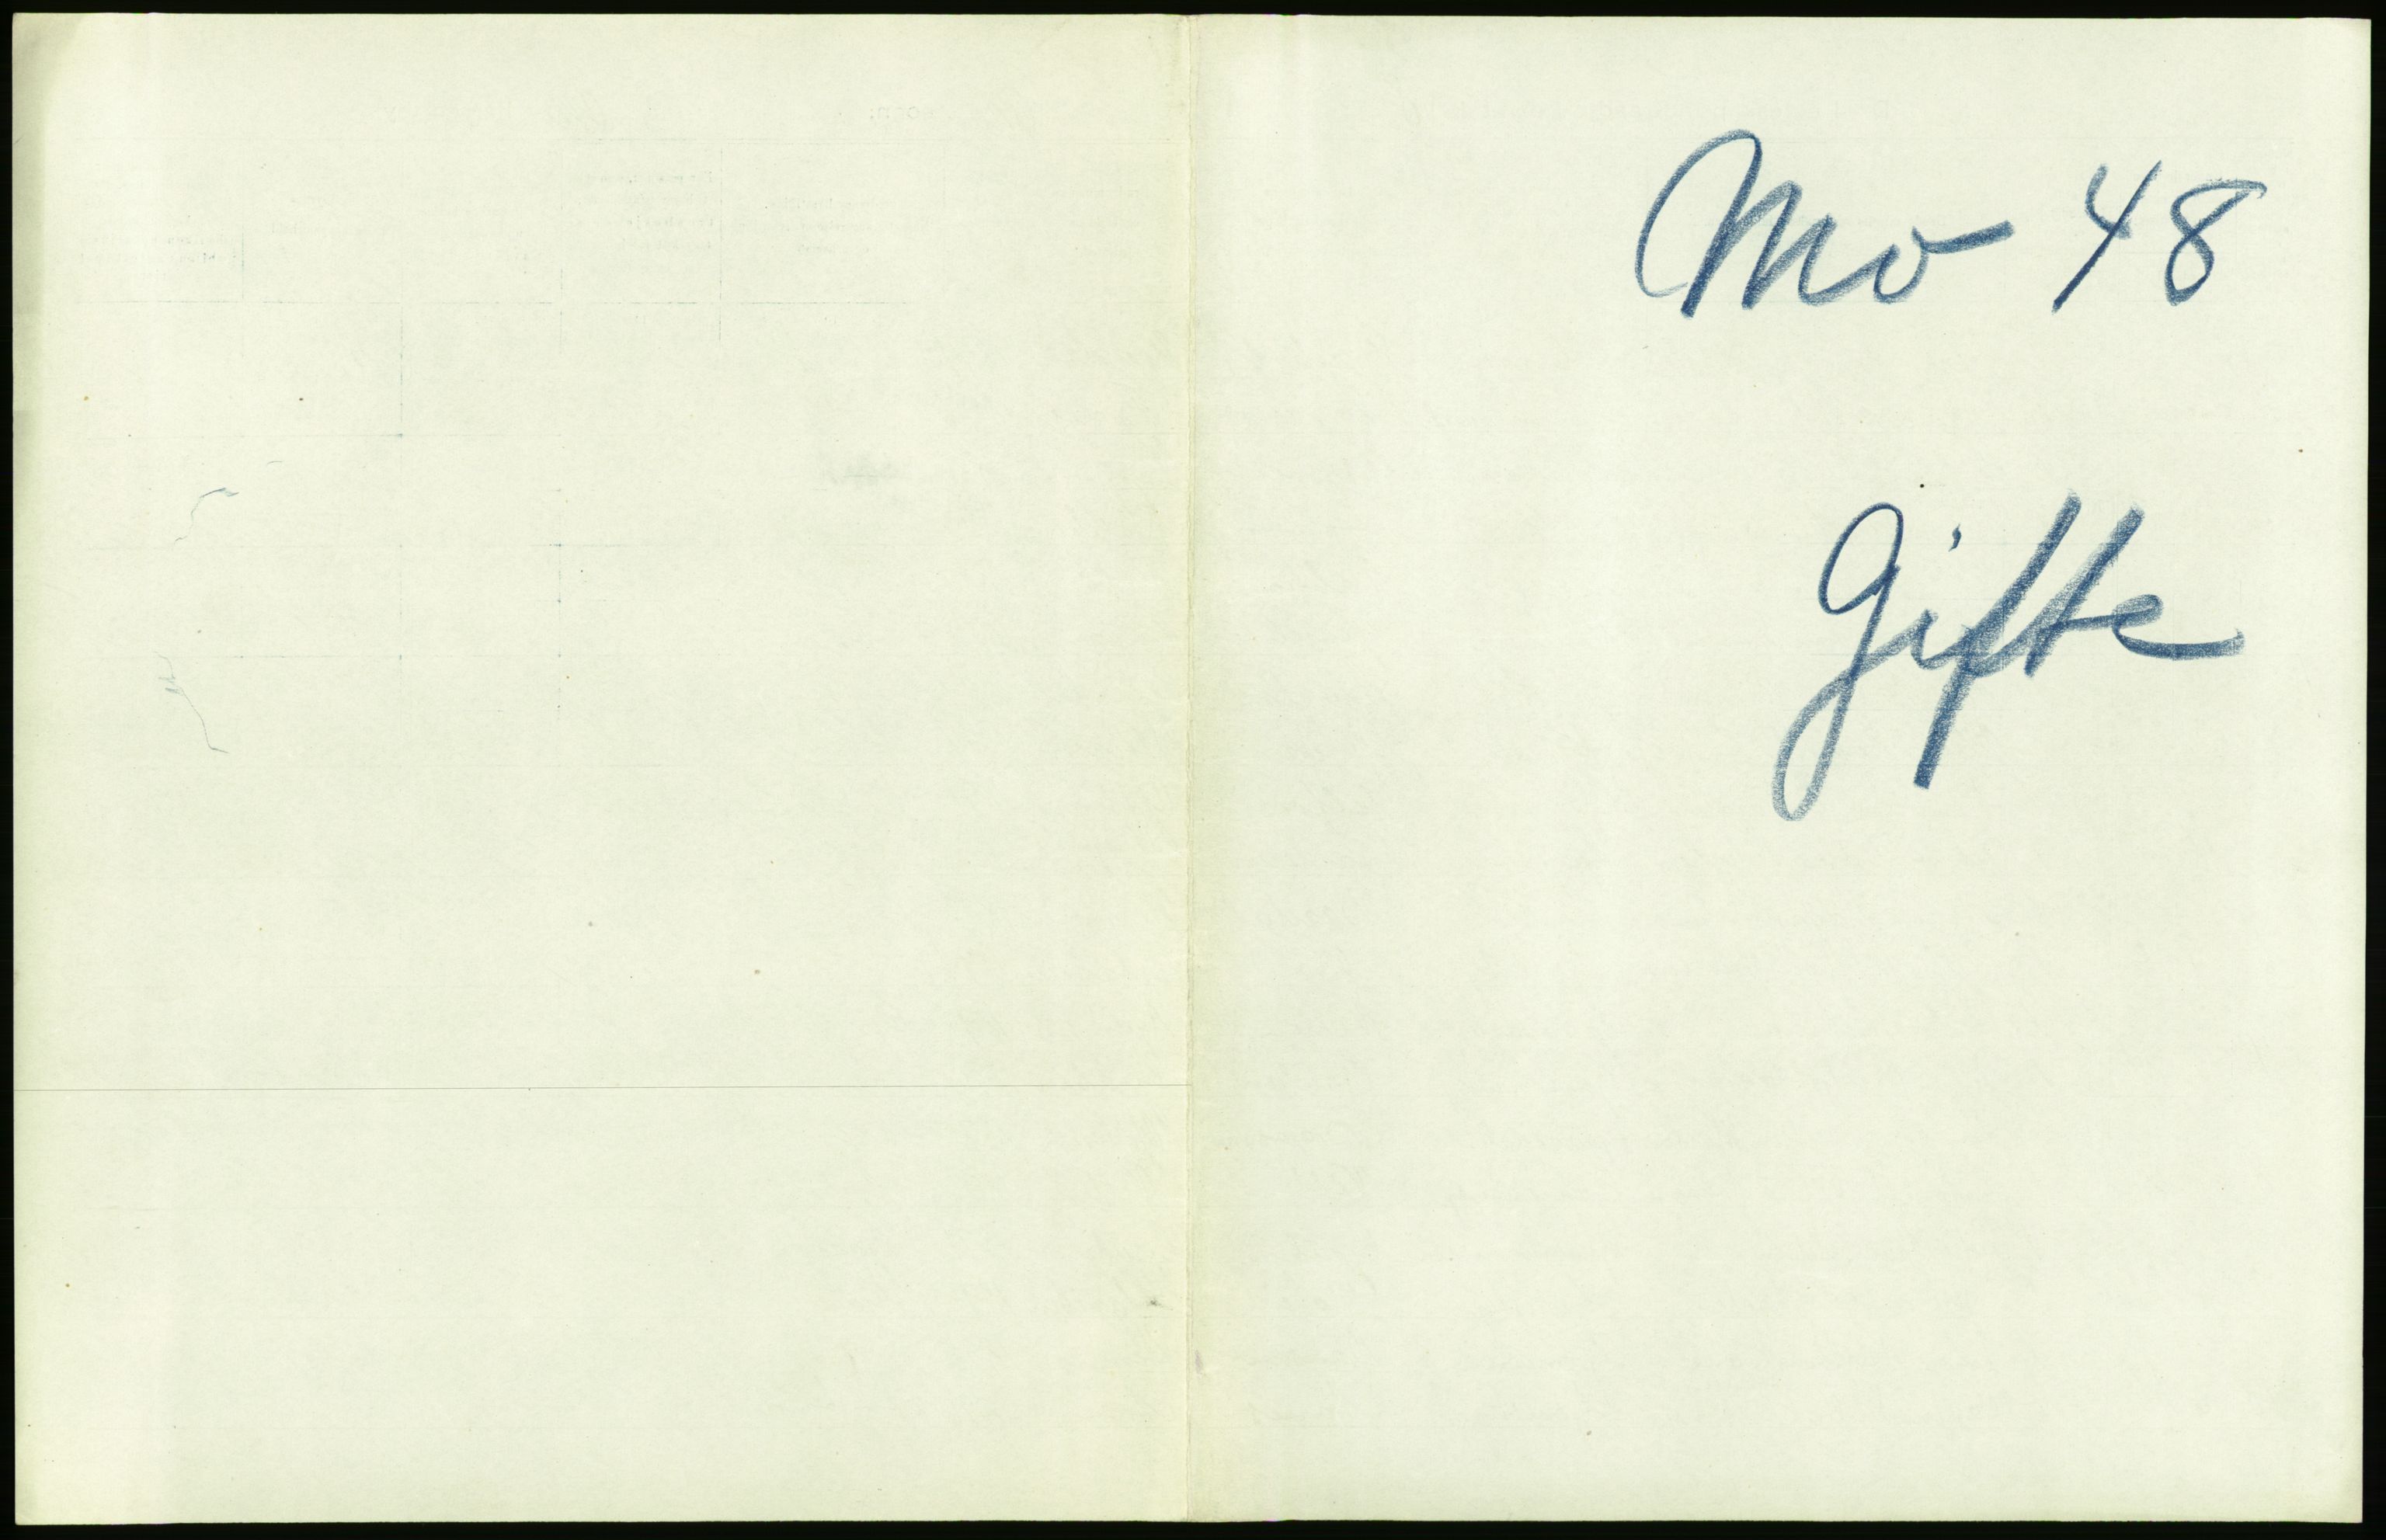 Mo 48
Gifte